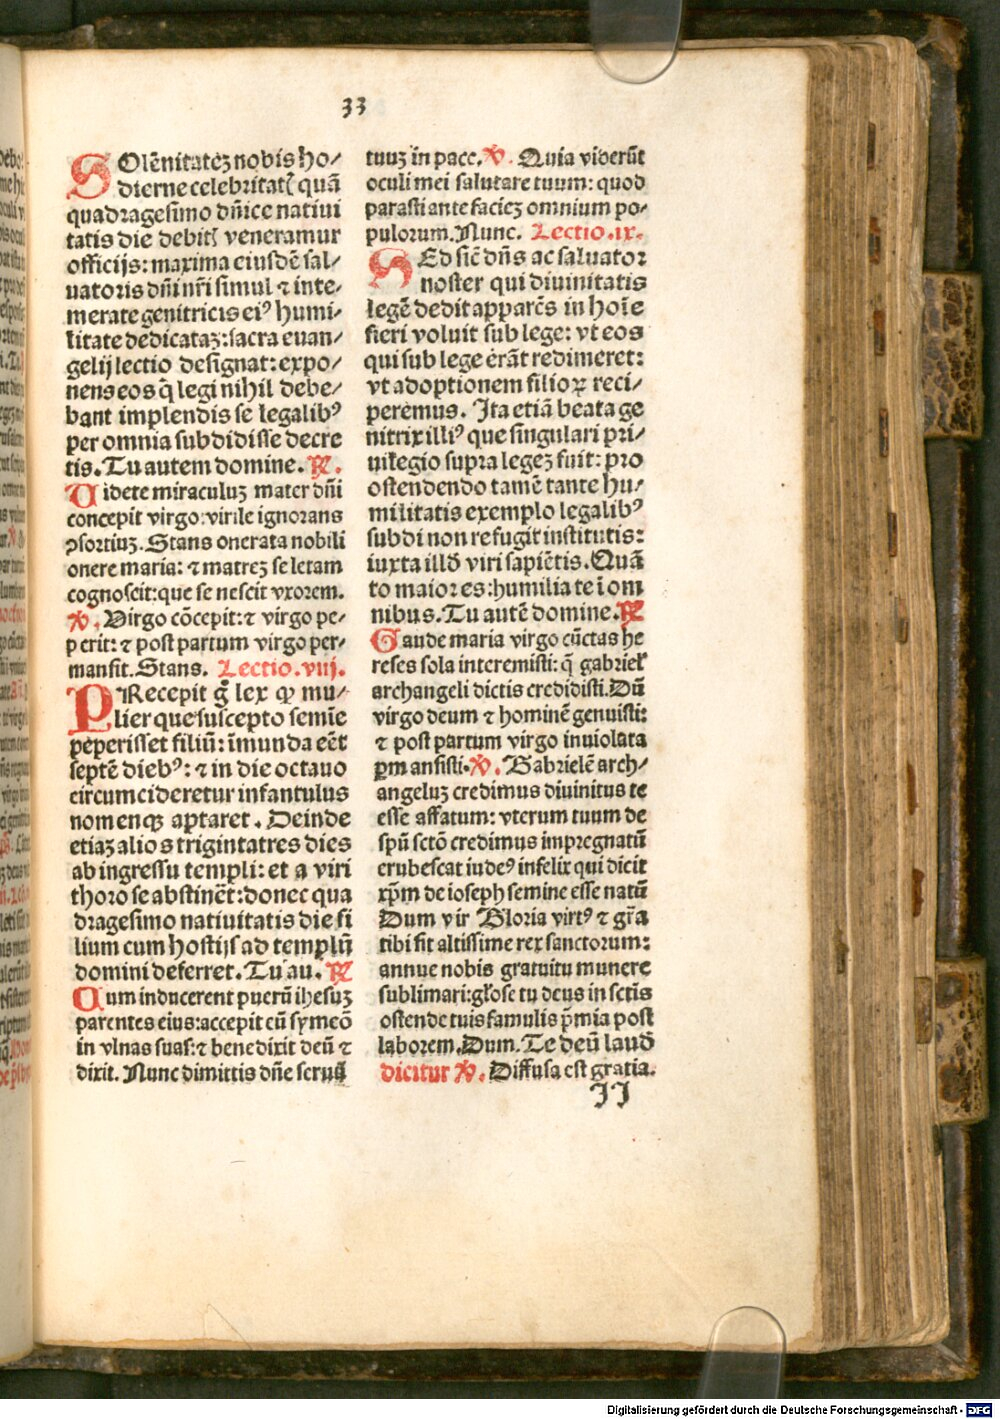 33
SOlēnitatēꝫ nobis ho⸗
dierne celebritatꝭ quā
quadragesimo dn̄ice natiui
tatis die debitꝭ veneramur
officijs: maxima eiusdē sal⸗
uatoris dn̄i nr̄i simul ⁊ inte⸗
merate genitricis eiꝰ humi⸗
litate dedicataꝫ: sacra euan⸗
gelij lectio designat: expo⸗
nens eos q̄ legi nihil debe⸗
bant implendis se legalibꝰ
per omnia subdidisse decre
tis. Tu autem domine. ℟.
Uidete miraculuꝫ mater dn̄i
concepit virgo: virile ignorans
ꝯsortiuꝫ. Stans onerata nobili
onere maria: ⁊ matreꝫ se letam
cognoscit: que se nescit vxorem.
℣. Virgo cōcepit: ⁊ virgo pe⸗
perit: ⁊ post partum virgo per⸗
mansit. Stans. Lectio. viij.
PRecepit g̊ lex ꝙ mu⸗
lier que suscepto semīe
peperisset filiū: īmunda eēt
septē diebꝰ: ⁊ in die octauo
circumcideretur infantulus
nomenqꝫ aptaret. Deinde
etiaꝫ alios trigintatres dies
ab ingressu templi: et a viri
thoro se abstinēt: donec qua
dragesimo natiuitatis die fi
lium cum hostijs ad templū
domini deferret. Tu au. ℟
Cum inducerent puerū ihesuꝫ
parentes eius: accepit eū symeō
in vlnas suas: ⁊ benedixit deū ⁊
dixit. Nunc dimittis dn̄e seruū
tuuꝫ in pace. ℣. Quia viderūt
oculi mei salutare tuum: quod
parasti ante facieꝫ omnium po⸗
pulorum. Nunc. Lectio. ix.
SEd sic̄ dn̄s ac saluator
noster qui diuinitatis
legē dedit apparēs in hoīe
fieri voluit sub lege: vt eos
qui sub lege erāt redimeret:
vt adoptionem filioꝝ reci⸗
peremus. Ita etiā beata ge
nitrix illiꝰ que singulari pri⸗
uilegio supra legeꝫ fuit: pro
ostendendo tamē tante hu⸗
militatis exemplo legalibꝰ
subdi non refugit institutis:
iuxta illd̄ viri sapiētis. Quā
to maior es: humilia te ī om
nibus. Tu autē domine. ℟
Gaude maria virgo cūctas he
reses sola interemisti: q̄ gabriel
archangeli dictis credidisti. Dū
virgo deum ⁊ hominē genuisti:
⁊ post partum virgo inuiolata
ꝑmansisti. ℣. Gabrielē arch⸗
angeluꝫ credimus diuinitus te
esse affatum: vterum tuum de
spū sctō credimus impregnatū
erubescat iudeꝰ infelix qui dicit
xp̄m de ioseph semine esse natū
Dum vir Gloria virtꝰ ⁊ gr̄a
tibi sit altissime rex sanctorum:
annue nobis gratuitu munere
sublimari: gl̄ose tu deus in sctīs
ostende tuis famulis p̄mia post
laborem. Dum. Te deū laud̄
dicitur ℣. Diffusa est gratia.
JJ
Digitalisierung gefördert durch die Deutsche Forschungsgemeinschaft - DFG